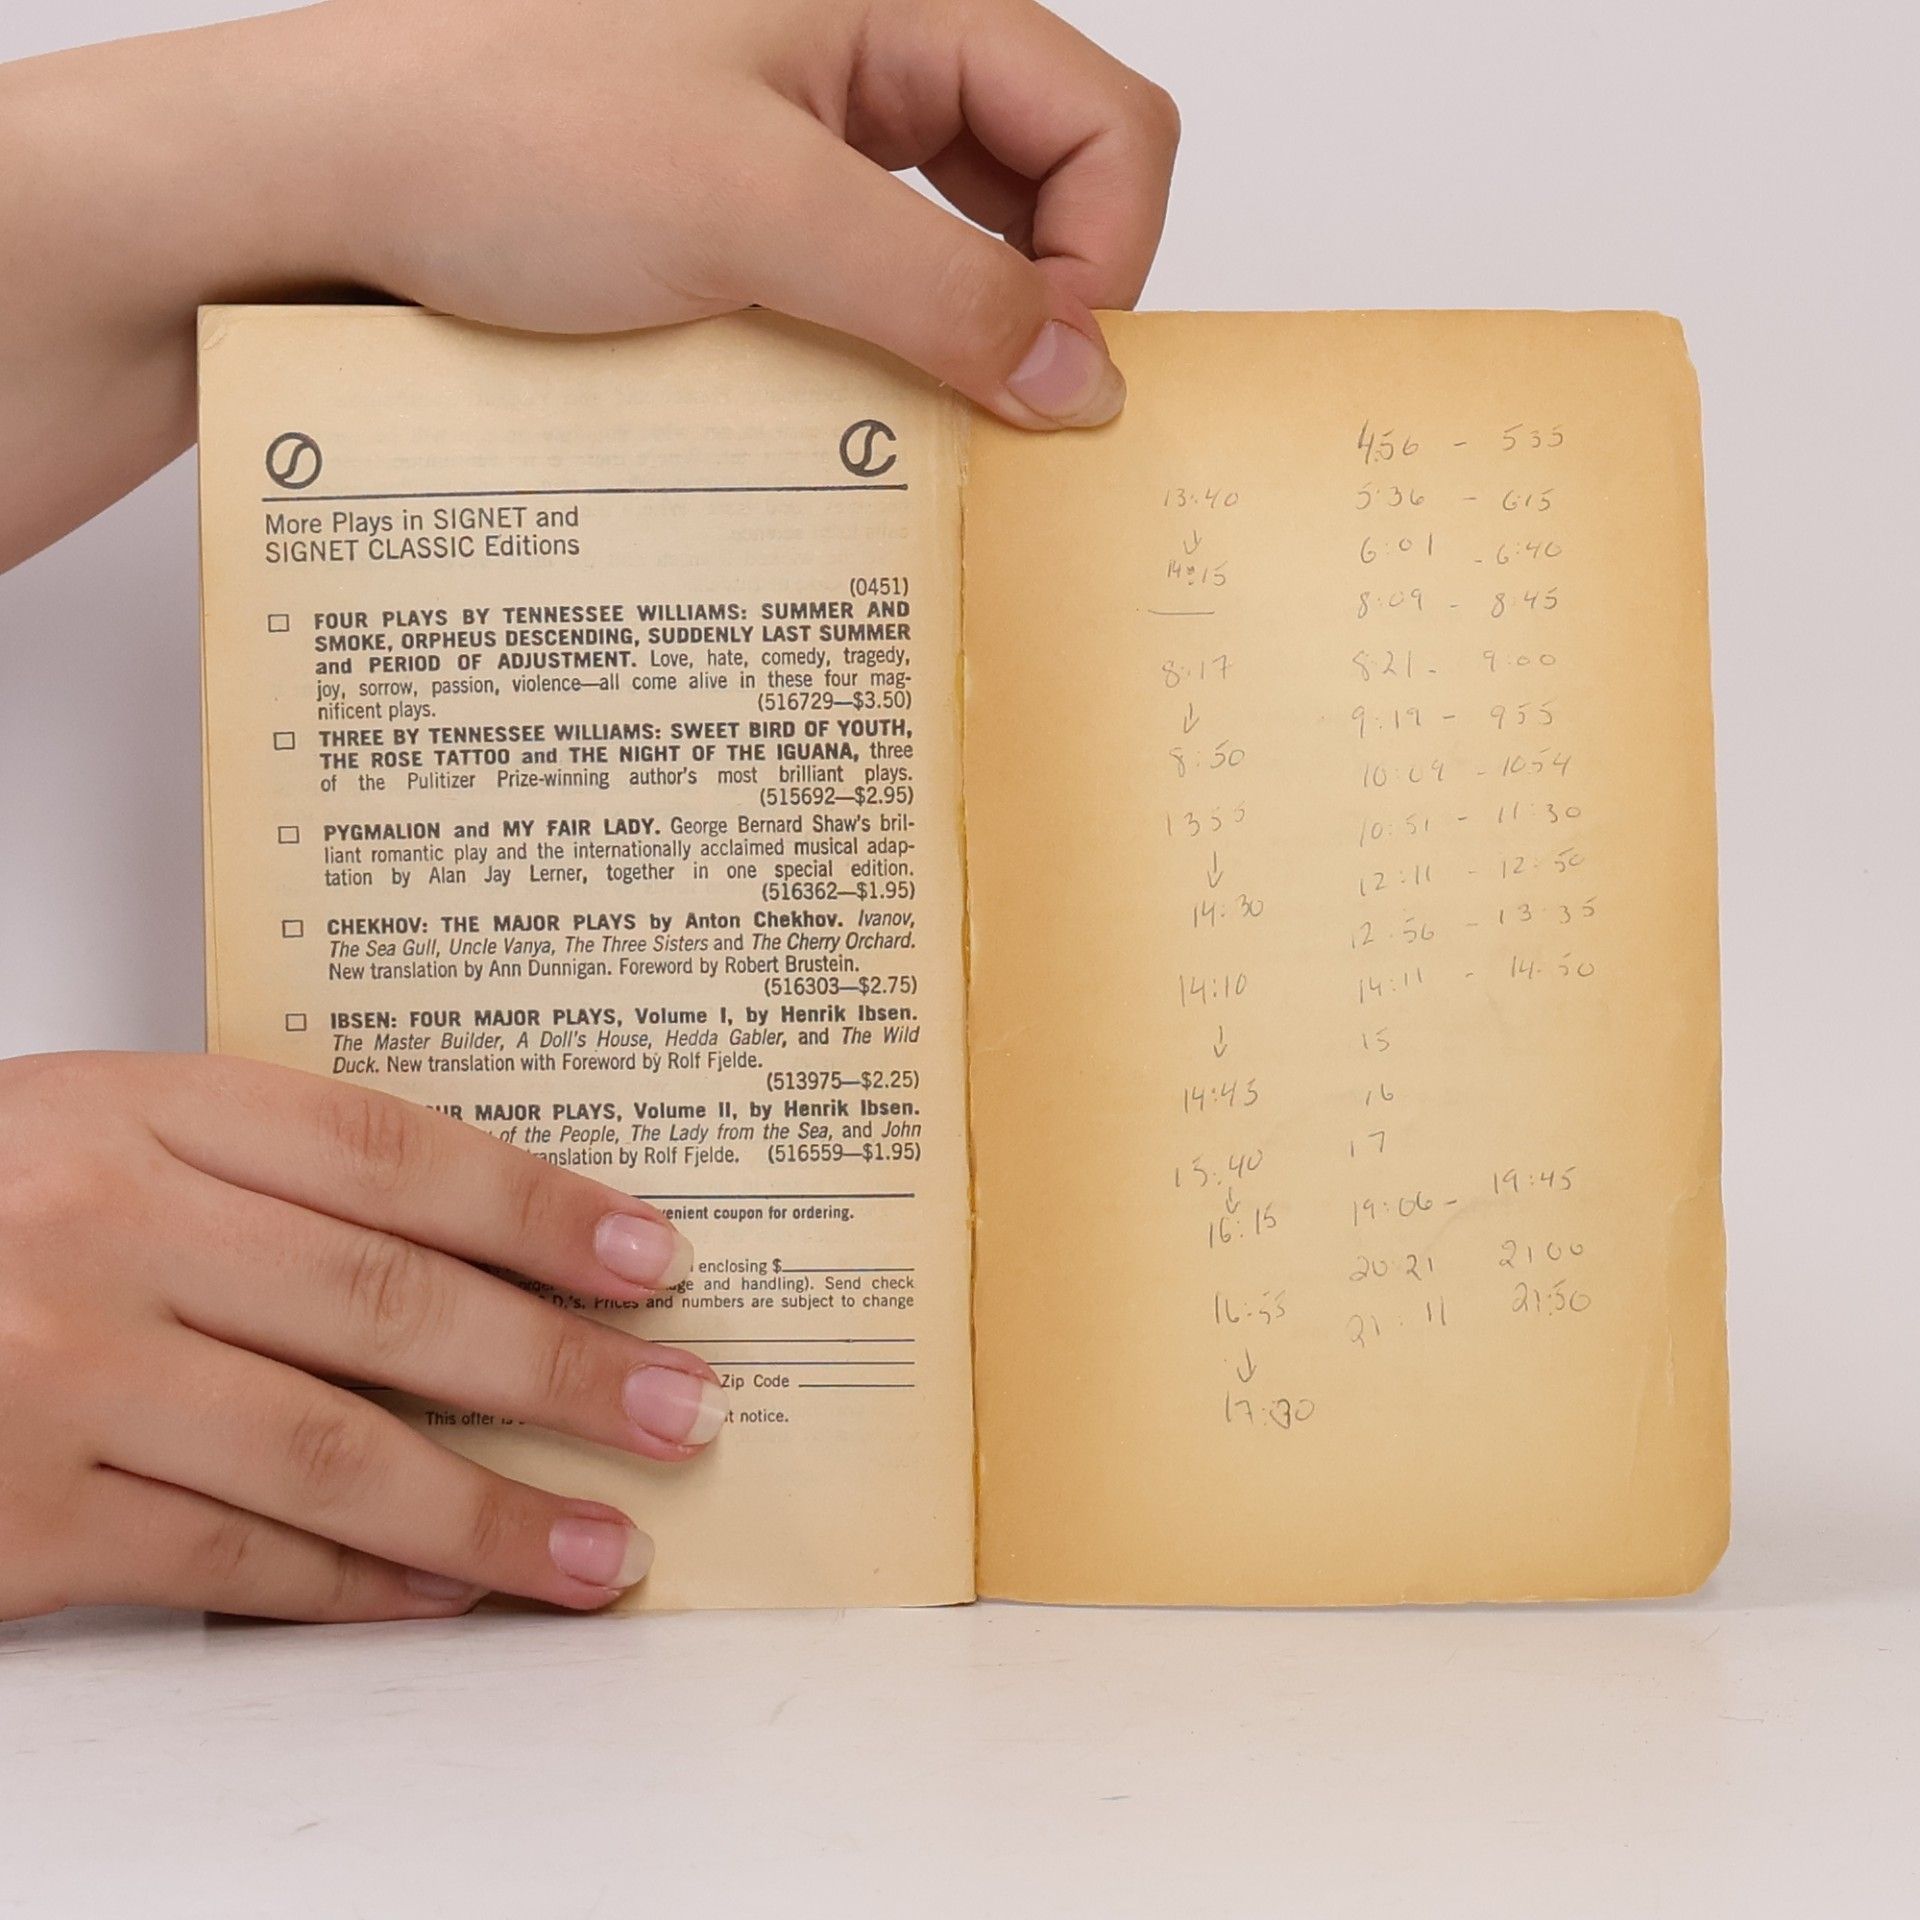 More Plays in SIGNET and
SIGNET CLASSIC Editions
(0451)
FOUR PLAYS BY TENNESSEE WILLIAMS: SUMMER AND
SMOKE, ORPHEUS DESCENDING, SUDDENLY LAST SUMMER
and PERIOD OF ADJUSTMENT. Love, hate, comedy, tragedy,
joy, sorrow, passion, violence—all come alive in these four mag-
nificent plays. (516729—$3.50)
THREE BY TENNESSEE WILLIAMS: SWEET BIRD OF YOUTH,
THE ROSE TATTOO and THE NIGHT OF THE IGUANA, three
of the Pulitizer Prize-winning author's most brilliant plays.
(515692—$2.95)
PYGMALION and MY FAIR LADY. George Bernard Shaw's bril-
liant romantic play and the internationally acclaimed musical adap-
tation by Alan Jay Lerner, together in one special edition.
(516362—$1.95)
CHEKHOV: THE MAJOR PLAYS by Anton Chekhov. Ivanov,
The Sea Gull, Uncle Vanya, The Three Sisters and The Cherry Orchard.
New translation by Ann Dunnigan. Foreword by Robert Brustein.
(516303—$2.75)
IBSEN: FOUR MAJOR PLAYS, Volume I, by Henrik Ibsen.
The Master Builder, A Doll's House, Hedda Gabler, and The Wild
Duck. New translation with Foreword by Rolf Fjelde.
(513975—$2.25)
MAJOR PLAYS, Volume II, by Henrik Ibsen.
of the People, The Lady from the Sea, and John
by Rolf Fjelde. (516559—$1.95)
coupon for ordering.
enclosing $
and handling). Send check
Prices and numbers are subject to change
Zip Code
This offer notice.
13:40
↓
14:15
8:17
↓
8:50
1355
↓
14:30
14:10
↓
14:45
15:40
↓
16:15
16:55
↓
17:30
4:56 - 535
5:36 - 615
6:01 - 6:40
8:09 - 8:45
8:21 - 9:00
9:19 - 955
10:09 - 1054
10:51 - 11:30
12:11 - 12:50
12:56 - 13:35
14:11 - 14:50
15
16
17
19:06 - 19:45
20:21 2100
21:11 21:50